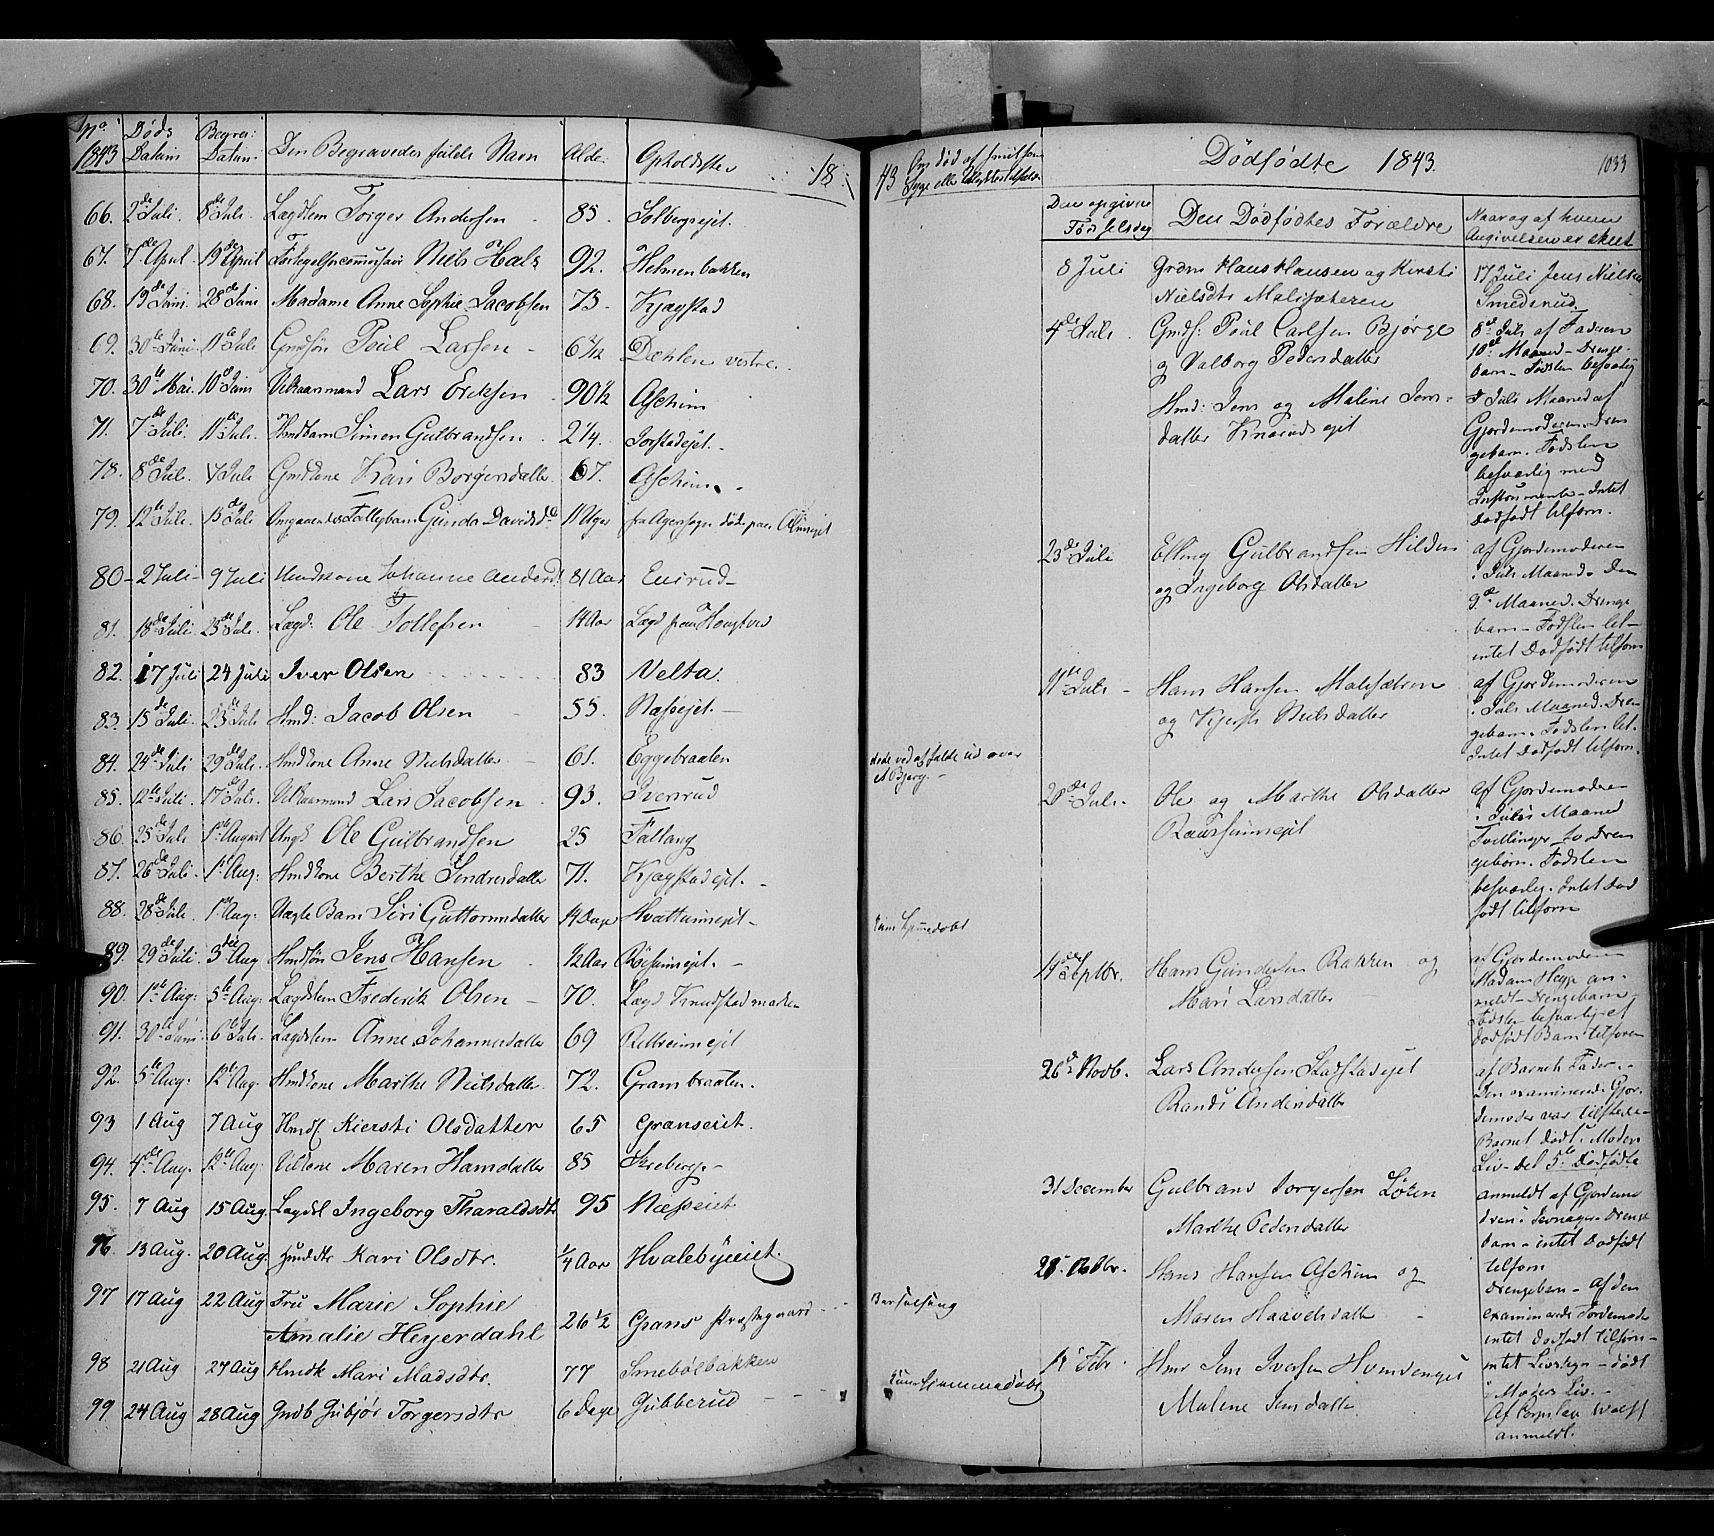 No Døds Begrav: Den Begravedes fulde Navn Alder Opholdsted 18
1843 Datum Datum
66. 2de Juli. 8de Juli. Lægdslem Torger Andersen 85. Solbergsejet.
67. 7de April 19de April Niels Hals 92. Helmenbakken
68. 19de Juni 28de Juni Madame Anne Sophie Jacobsen 73. Kjægstad
69. 30te Juni 11te Juli Gmdsøn Poul Larsen 6 1/12 Dæhlen vestre.
70. 30te Mai. 10de Juni Vilkaarmand Lars Eriksen 90 1/2 Aschim
71. 7de Juli. 11te Juli. Hmdbarn Simen Gulbrandsen 2 1/4. Jorstadejet.
78. 8de Juli. 7 Juli Gmdkone Kari Borgersdatter 67. Aschim.
79. 12te Juli. 15de Juli Omgaaendes Tatterbarn Gunda Davidsd. 11 Uger fra Agersogn døde paa
80 2 Juli 9 Juli Huuskone Johanne Andersd. 81 Aar Ensrud
81. 18de Juli 23de Juli. Lægd: Ole Tollefsen 14 Aar Lægd paa
82. 17 Juli 24 Juli Iver Olsen 83 Velta.
83. 15de Juli. 23de Juli Hmd: Jacob Olsen 55. Næssejet.
84. 24de Juli 29de Juli. Hmdkone Anne Nielsdatter 61. Eggebraaten
85. 12te Juli. 17de Juli. Vilkaarmand Lars Jacobsen 93. Iversrud
86. 25de Juli 1ste August Ungk. Ole Gulbrandsen 25 Fallang
87. 26de Juli. 1ste Aug: Hmdkone Berthe Sindresdatter 71. Kjægstadejet.
88. 28de Juli. 1ste Aug: Uægte Barn Siri Guttormsdatter 14 Dage Hvattumsejet
89. 29de Juli. 3die Aug Hmdsøn Jens Hansen 1/2 Aar Røisumsejet.
90. 1ste Aug: 5te Aug: Lægdslem Frederik Olsen 70. Lægd
91. 30te Juni 6te Juli. Lægdslem Anne Johannesdatter 69
92. 5te Aug: 12te Aug. Hmdkone Marthe Nielsdatter 72. Granbraaten.
93 1 Aug 7 Aug Hmdk Kiersti Olsdatter 65 Granseiet.
94. 4de Aug. 12te Aug: Vilkone Maren Hansdatter 85
95. 7 Aug 15 Aug Lægdsl Ingeborg Tharaldsdtr 95 Næsseiet
96. 13 Aug. 20 Aug. Hmdsdtr Kari Olsdtr. 1/4 Aar Hvalebyeiet.
97 17 Aug 22 Aug Fru Marie Sophie
Amalie Heyerdahl 26 1/2 Grans Præstegaard
98 21 Aug 27 Aug Hmdk Mari Madsdtr. 77 Smebølbakken
99 24 Aug 28 Aug Gmdb Gubjør Torgersdtr 6 Dage Gubberud
43 Om død af smitsom
Syge eller Ulykkestilfælde
døde ved at falde ud over
et Bjerg.
kun hjemmedøbt
Barselseng
kun Hjemmedøbt
Dødfødte 1843. 1033
Den opgivne
Fødselsdag
Den Dødfødtes Forældre
Naar og af hvem
Angivelsen er skeet
8 Juli Grdm Hans Hansen og Kirsti
Nielsdtr Malisæteren
17 Juli Jens Nielsen
Smedsrud
4de Juli. Gmd: Poul Carlsen Bjørge
og Valborg Pedersdatter
8de Juli af Faderen
10de Maaned - Drenge-
barn - Fødslen besværlig
Hmd: Jens og Malene Jens-
datter
Juli Maaned af
Gjordemoderen. Dren
gebarn. Fødslen
besværlig med
Instrumenter - Intet
Dødfødt tilforn.
23de Juli Elling Gulbrandsen Hilden
og Ingeborg Olsdatter
af Gjordemoderen
i Juli Maaned. Den
9de Maaned. Drenge
barn - Fødslen let -
intet Dødfødt tilforn
11te Juli Hans Hansen Malisætren
og Kjersti Nielsdatter
af Gjordemoderen
i Juli Maaned. Dren
gebarn. Fødslen let.
Intet Dødfødt tilforn.
20de Juli. Ole og Marthe Olsdatter
af Gjordemoderen
i Julii Maaned
Tvillinger to Dren
gebørn. Fødslen
besværlig. Intet Død
født tilforn
19de Septbr. Hans Gundersen Bakken og
Mari Larsdatter
af Gjordemoderen
Madam Hepp an-
meldt - Drengebarn -
Fødslen besværlig et
dødfødt Barn tilforn
26de Novb. Lars Andersen
Randi Andersdatter
af Barnets Fader. -
Den examinerede Gjor-
demoder var tilstede -
Barnet dødt i Moders
Liv - det 5te Dødfødte
31 December Gulbrand Torgersen Løken
Marthe Pedersdatter
anmeldt af Gjordemo
deren i Jevnager. Drenge
barn - intet Dødfødt
tilforn
Hans Hansen Aschim og
Maren Haavelsdatter
Drengebarn - Af den
examinerede Jordemoder
intet Dødfødt tilforn -
Febr. Hmd Jens Iversen
Malene Jensdatter
intet Livstegn - dødt
i Moders Liv. -
anmeldt.